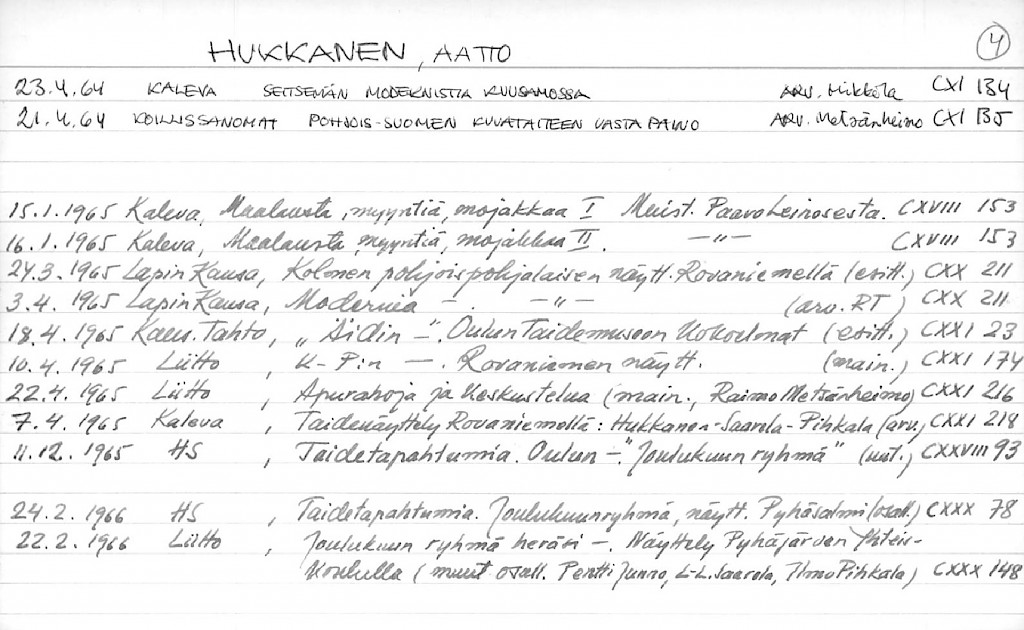 HUKKANEN, AATTO 4
23.4.64 KALEVA SEITSEMÄN MODERNISTIA KUUSAMOSSA ARV. Mikkola CXI 134
21.4.64 KOILLISSANOMAT POHJOIS-SUOMEN KUVATAITEEN VASTAPAINO ARV. Metsänheimo CXI 135
15.1.1965 Kaleva, Maalausta, myyntiä, mojakkaa I Muist. Paavo Leinosesta. CXVIII 153
16.1.1965 Kaleva, Maalausta, myyntiä, mojakkaa II. —"— CXVIII 153
24.3.1965 Lapin Kansa, Kolmen pohjoispohjalaisen näytt. Rovaniemellä (esitt.) CXX 211
3.4.1965 Lapin Kansa, Modernia —. —"— (arv. RT) CXX 211
18.4.1965 Kans. Tahto, "Äidin —". Oulun Taidemuseon kokoelmat (esitt.) CXXI 23
10.4.1965 Liitto, K-P:n —. Rovaniemen näytt. (main.) CXXI 174
22.4.1965 Liitto, Apurahoja ja keskustelua (main., Raimo Metsänheimo) CXXI 216
7.4.1965 Kaleva, Taidenäyttely Rovaniemellä: Hukkanen-Saarela-Pihkala (arv.) CXXI 218
11.12.1965 HS, Taidetapahtumia. Oulun —. "Joulukuun ryhmä" (uut.) CXXVIII 93
24.2.1966 HS, Taidetapahtumia. Joulukuunryhmä, näytt. Pyhäsalmi (osall.) CXXX 78
22.2.1966 Liitto, Joulukuun ryhmä heräsi —. Näyttely Pyhäjärven Yhteis-
koululla (muut osall. Pentti Junno, L-L. Saarela, Ilmo Pihkala) CXXX 148